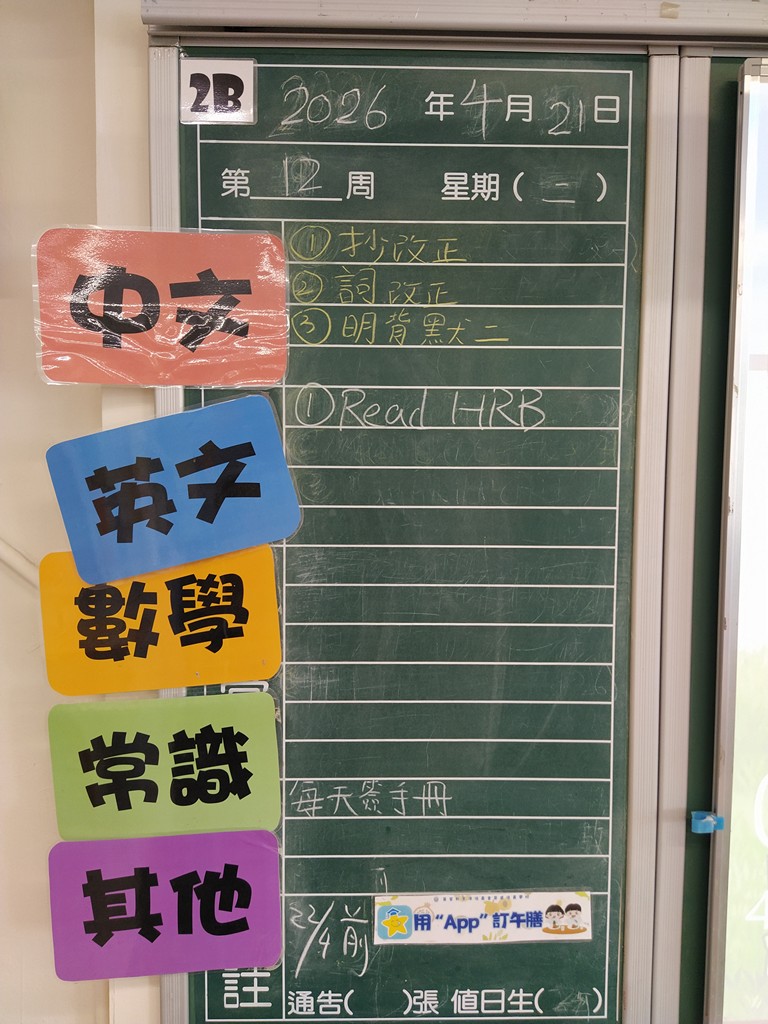 2B
2026年4月21日
第12周 星期(二)
中文
①抄改正
②詞改正
③明背默二
英文
①Read HRB
數學
常識
每天簽手冊
其他
22/4前
用“App”訂午膳
註
通告( )張 值日生( )